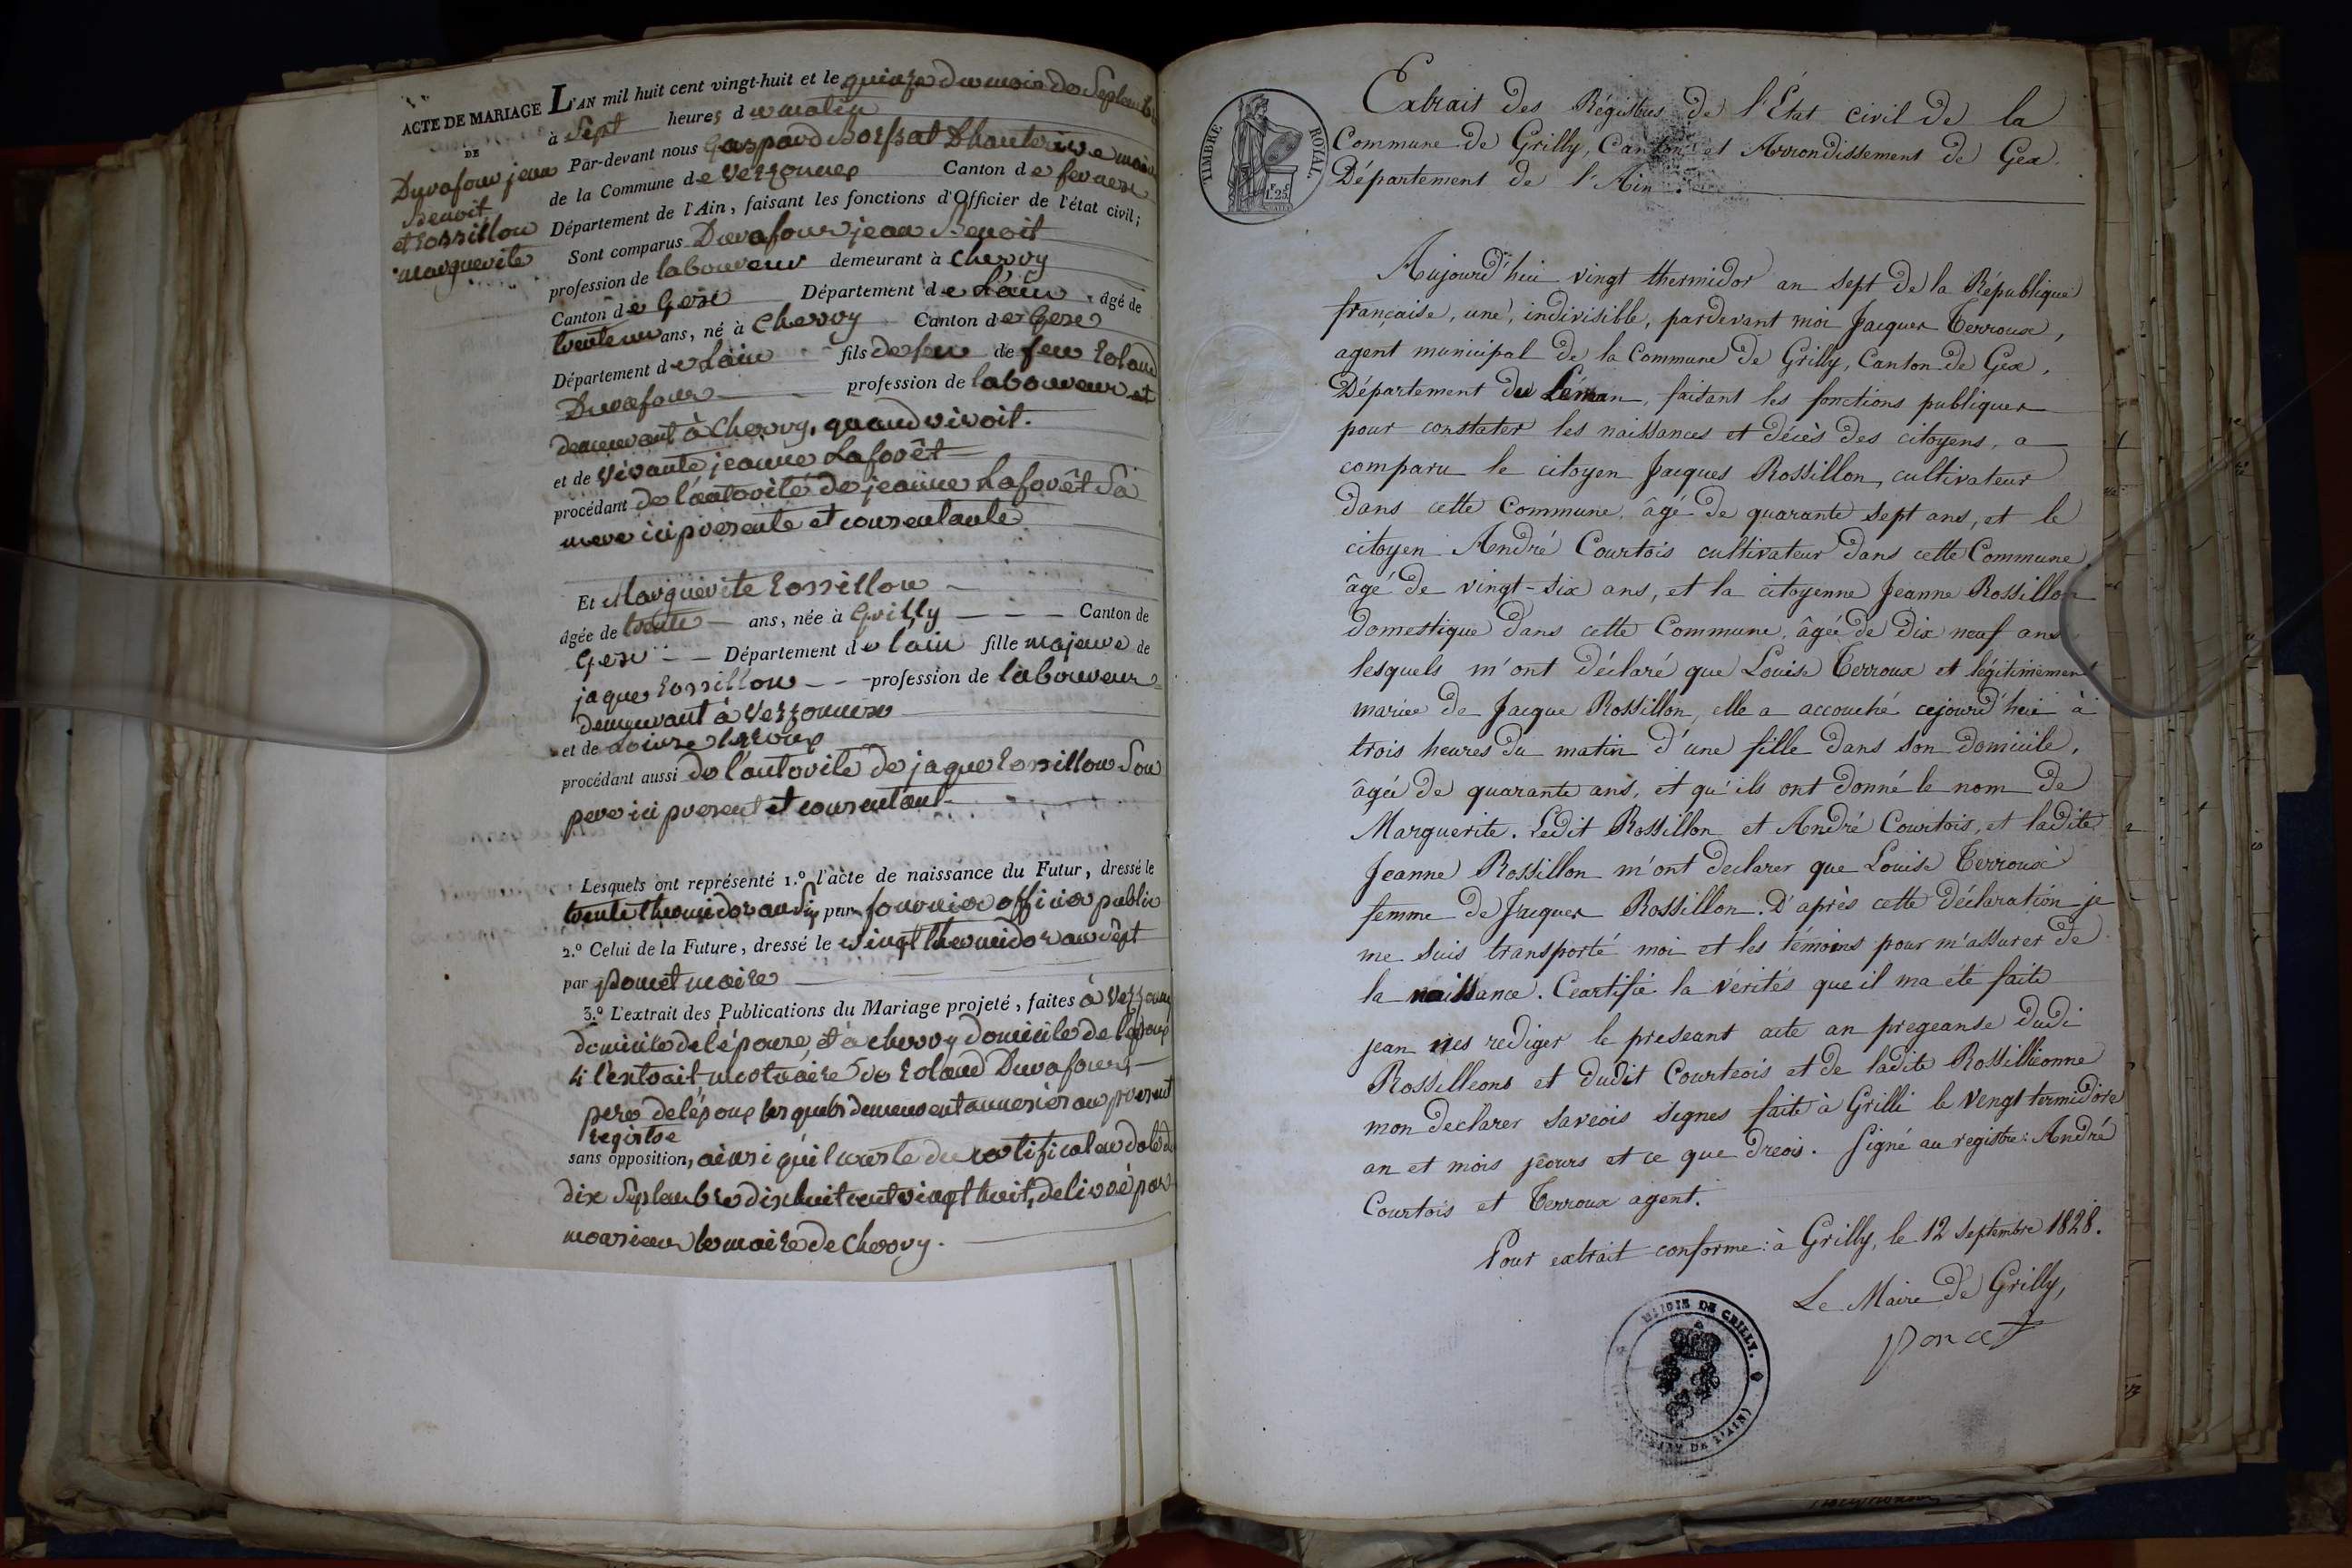 ACTE DE MARIAGE
DE
Duvafour jean
Benoit
et Rossillon
marguerite
L'AN mil huit cent vingt-huit et le quinze du mois de Septembre
à Sept heures du matin
Par-devant nous Gaspard Dhauterive maire
de la Commune de Verzonnex Canton de fernex
Département de l'Ain, faisant les fonctions d'Officier de l'état civil;
Sont comparus Duvafour jean Benoit
profession de laboureur demeurant à Chevry
Canton de Gex Département de L'ain, âgé de
trente un ans, né à Chevry Canton de Gex
Département de Lain fils de feu de feu Roland
Duvafour profession de laboureur et
demeurant à Chevry, quand vivoit.
et de vivante jeanne Laforêt
procédant de l'autorité de jeanne Laforêt Sa
mere ici presente et consentante
Et Marguerite Rossillon
âgée de trente ans, née à Grilly Canton de
Gex Département de l'ain fille majeure de
jaques Rossillon profession de laboureur
demeurant à Verzonnex
et de Louise
procédant aussi de l'autorité de jaque Rossillon Son
pere ici present et consentant
Lesquels ont représenté 1.º l'acte de naissance du Futur, dressé le
trente thermidor an par fournier officier public
2.º Celui de la Future, dressé le vingt thermidor an sept
par poncet maire
3.º L'extrait des Publications du Mariage projeté, faites à Verzonnex
domicile de l'épouse, et à chevry domicile de l'époux
4 l'extrait mortuaire de Roland Duvafour,
pere de l'époux les quels demeurent annexés au present
registre
sans opposition, ainsi qu'il conste du certificat en date du
dix Septembre dix huit cent vingt huit, delivré par
monsieur le maire de Chevry.
TIMBRE ROYAL.
1.F 25
Extrait des Régistres de l'État civil de la
Commune de Grilly, Canton et Arrondissement de Gex.
Département de l'Ain.
Aujourd'hui vingt thermidor an sept de la République
française, une, indivisible, pardevant moi Jacques Terroux,
agent municipal de la Commune de Grilly, Canton de Gex,
Département du Léman, faisant les fonctions publiques
pour constater les naissances et décès des citoyens, a
comparu le citoyen Jacques Rossillon, cultivateur
dans cette Commune, âgé de quarante sept ans, et le
citoyen André Courtois cultivateur dans cette Commune
âgé de vingt-six ans, et la citoyenne Jeanne Rossillon
domestique dans cette Commune, âgée de dix neuf ans
lesquels m'ont déclaré que Louise Terroux et légitimement
mariée de Jacque Rossillon, elle a accouché cejourd'hui à
trois heures du matin d'une fille dans son domicile,
âgée de quarante ans, et qu'ils ont donné le nom de
Marguerite. Ledit Rossillon et André Courtois, et ladite
Jeanne Rossillon m'ont declarer que Louise Terroux
femme de Jacques Rossillon. D'après cette déclaration je
me suis transporté moi et les témoins pour m'assurer de
la naissance. Ceartifié la vérités que il ma été faite
jean nes rediger le preseant acte an pregeanse dudi
Rossilleons et dudit Courteois et de ladite Rossillieonne
mon declarer saveois signes faite à Grilli le vengt termidore
an et mois jeours et ce que dreois. Signé au registre: André
Courtois et Terroux agent.
Pour extrait conforme: à Grilly, le 12 Septembre 1828.
Le Maire de Grilly,
Poncet
MAIRIE DE GRILLY.